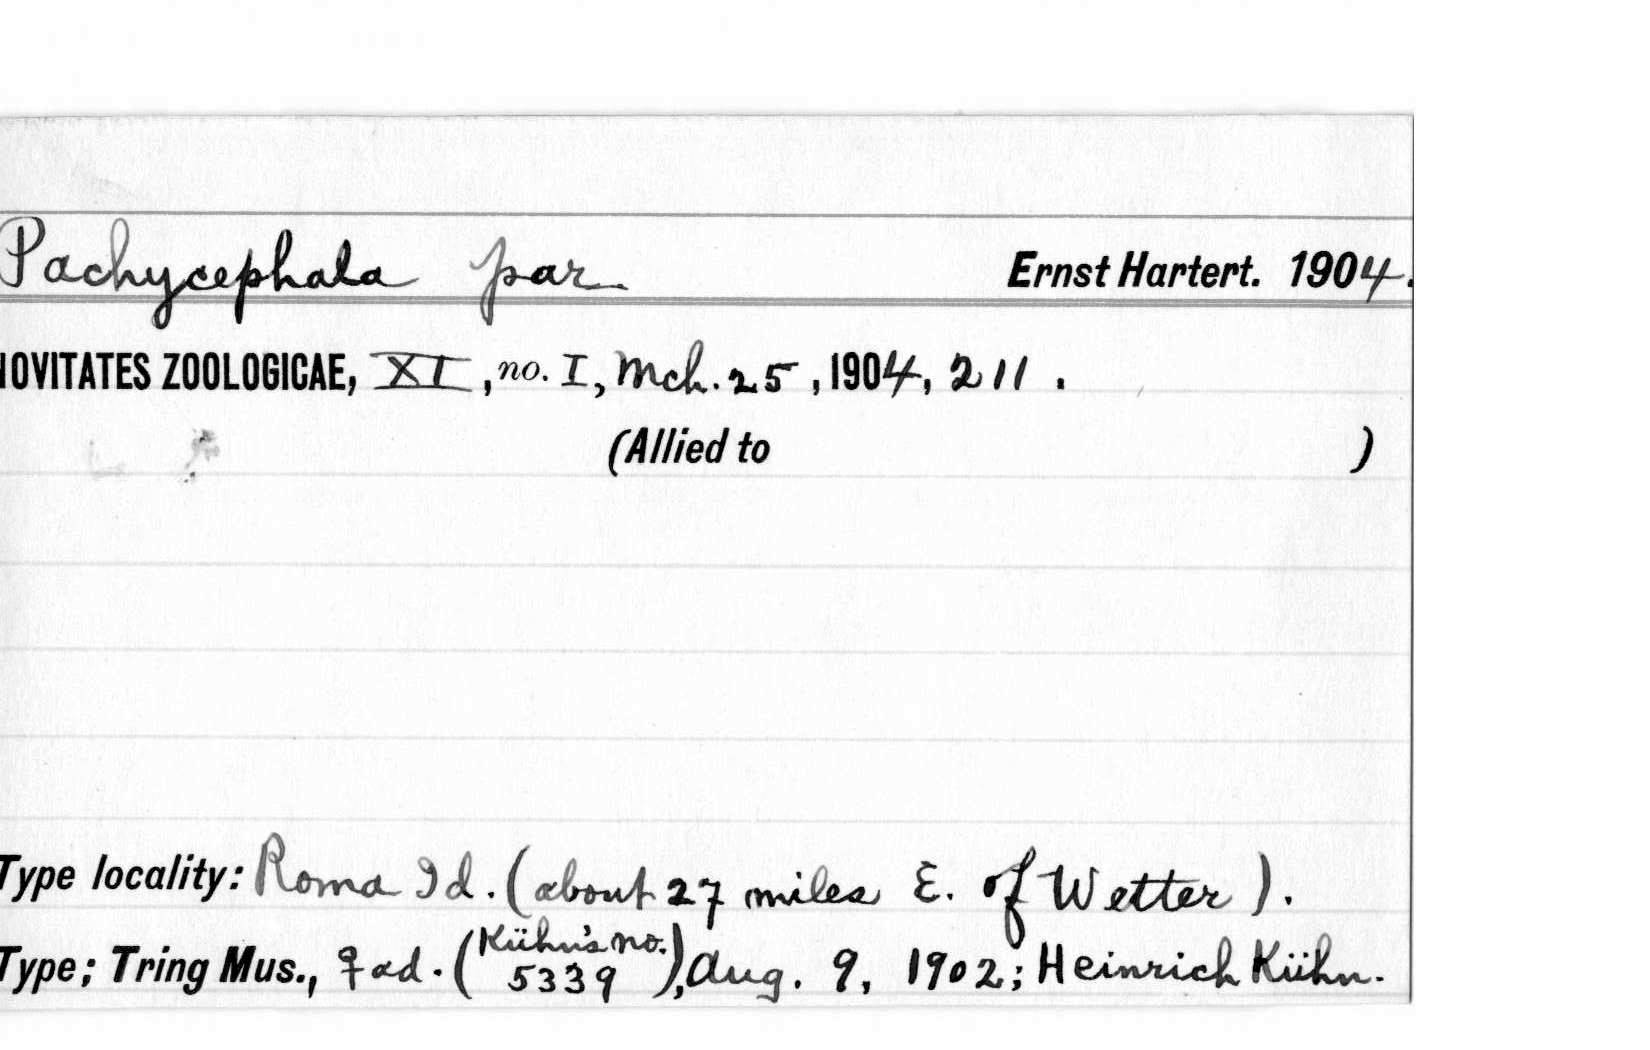 Pachycephala par Ernst Hartert. 1904.
NOVITATES ZOOLOGICAE, XI, no. I, Mch. 25, 1904, 211.
(Allied to )
Type locality: Roma Id. (about 27 miles E. of Wetter).
Type; Tring Mus., ♀ ad. (Kühn's no. 5339), Aug. 9, 1902; Heinrich Kühn.